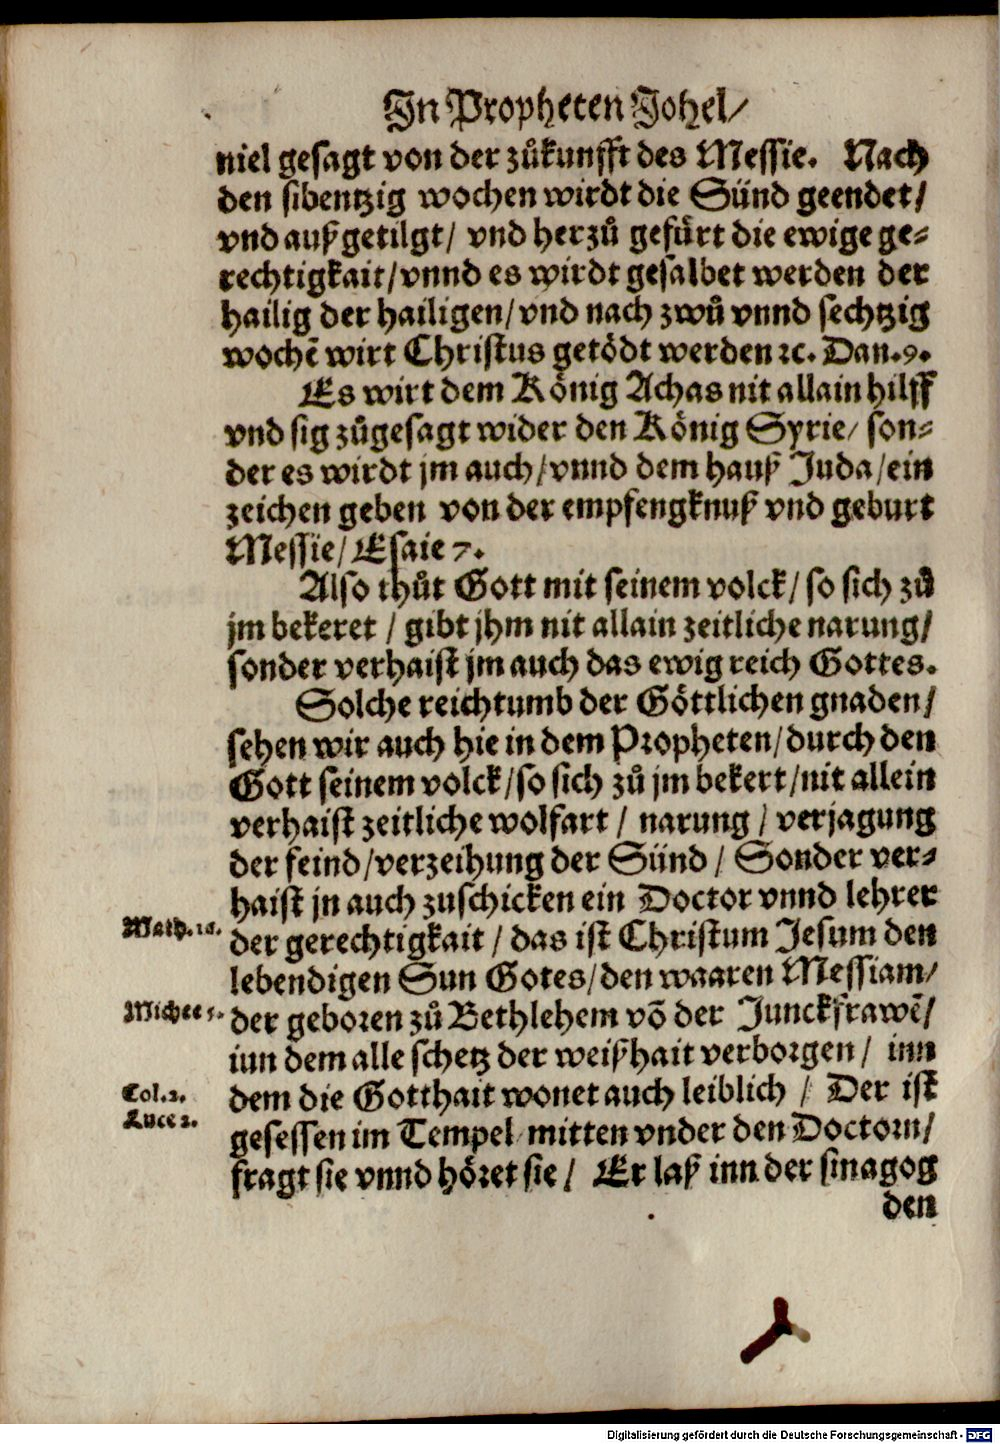 In Propheten Johel/
niel gesagt von der zůkunfft des Messie. Nach
den sibentzig wochen wirdt die Sünd geendet/
vnd außgetilgt/ vnd herzů gefürt die ewige ge-
rechtigkait/ vnnd es wirdt gesalbet werden der
hailig der hailigen/ vnd nach zwů vnnd sechtzig
wochẽ wirt Christus getödt werden ꝛc. Dan.9.
Es wirt dem König Achas nit allain hilff
vnd sig zůgesagt wider den König Syrie/ son-
der es wirdt jm auch/ vnnd dem hauß Juda/ ein
zeichen geben von der empfengknuß vnd geburt
Messie/ Esaie 7.
Also thůt Gott mit seinem volck/ so sich zů
jm bekeret / gibt jhm nit allain zeitliche narung/
sonder verhaist jm auch das ewig reich Gottes.
Solche reichtumb der Göttlichen gnaden/
sehen wir auch hie in dem Propheten/ durch den
Gott seinem volck/ so sich zů jm bekert/ nit allein
verhaist zeitliche wolfart / narung / verjagung
der feind/ verzeihung der Sünd / Sonder ver-
haist jn auch zuschicken ein Doctor vnnd lehrer
Math.16. der gerechtigkait / das ist Christum Jesum den
lebendigen Sun Gotes/ den waaren Messiam/
Michee 5. der geboren zů Bethlehem võ der Junckfrawẽ/
inn dem alle schetz der weißhait verborgen / inn
Col.2. dem die Gotthait wonet auch leiblich / Der ist
Luce 2. gesessen im Tempel mitten vnder den Doctorn/
fragt sie vnnd höret sie / Er laß inn der sinagog
den
Digitalisierung gefördert durch die Deutsche Forschungsgemeinschaft - DFG